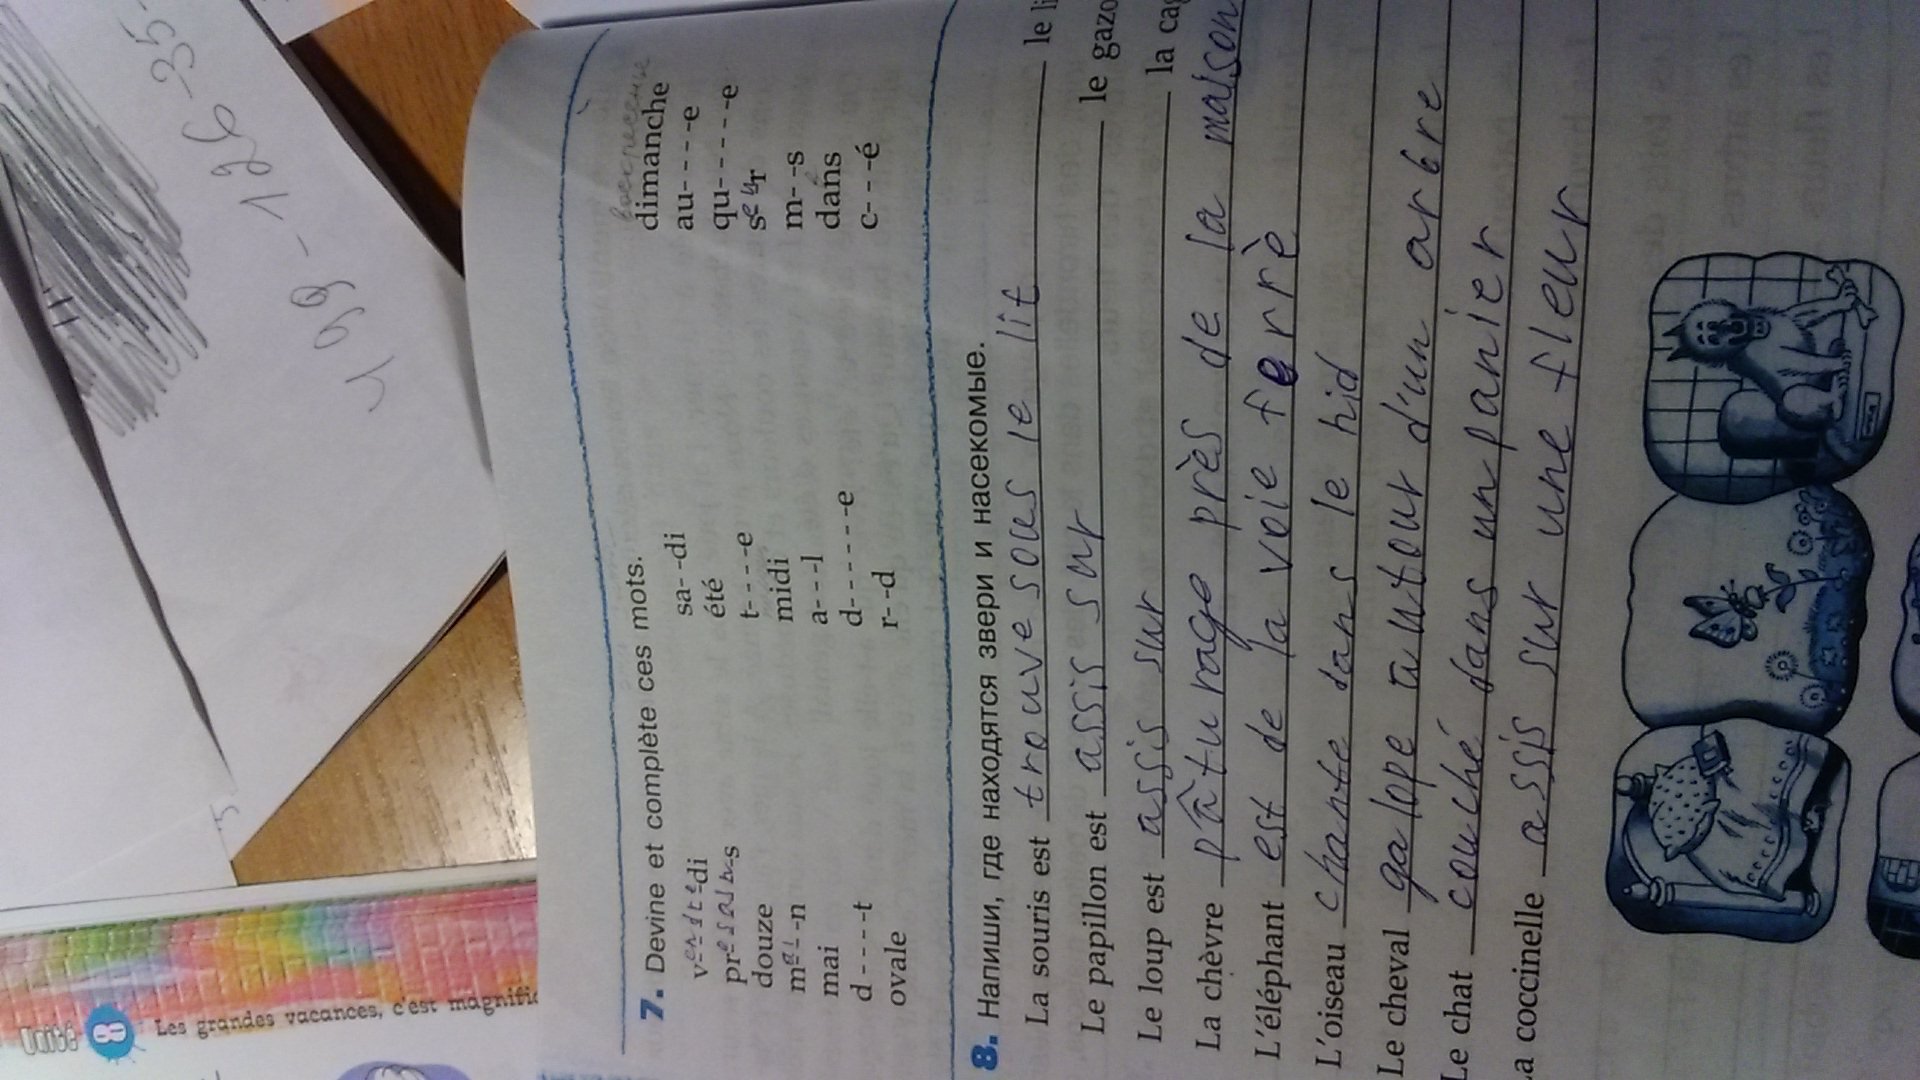 498 - 126 - 35 -
Unité 8 Les grandes vacances, c'est magnific
7. Devine et complète ces mots.
vendredi sa- -di воскресенье dimanche
pr s été au- - - -e
douze t- - - -e qu- - - - - -e
ma- -n midi seur
mai a- - -l m- -s
d- - - -t d- - - - - -e dans
ovale r- -d c- - -é
8. Напиши, где находятся звери и насекомые.
La souris est trouve sous le lit le li
Le papillon est assis sur le gazo
Le loup est assis sur la cag
La chèvre pâturage près de la maison
L'éléphant est de la voie ferrè
L'oiseau chante dans le nid
Le cheval galope autour d'un arbre
Le chat couché dans un panier
La coccinelle assis sur une fleur